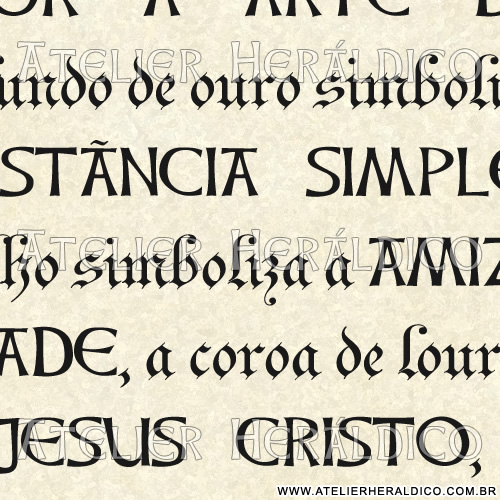 OR A ARTE D
Atelier Heráldico
undo de ouro simboli
STÃNCIA SIMPLE
Atelier Heráldico
lho simboliza a AMIZ
ADE, a coroa de lour
Atelier Heráldico
JESUS CRISTO,
WWW.ATELIERHERALDICO.COM.BR